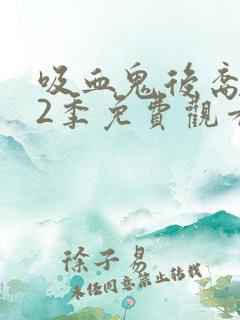 吸血鬼後裔
2季免費觀看
徐子易
未经同意禁止转载